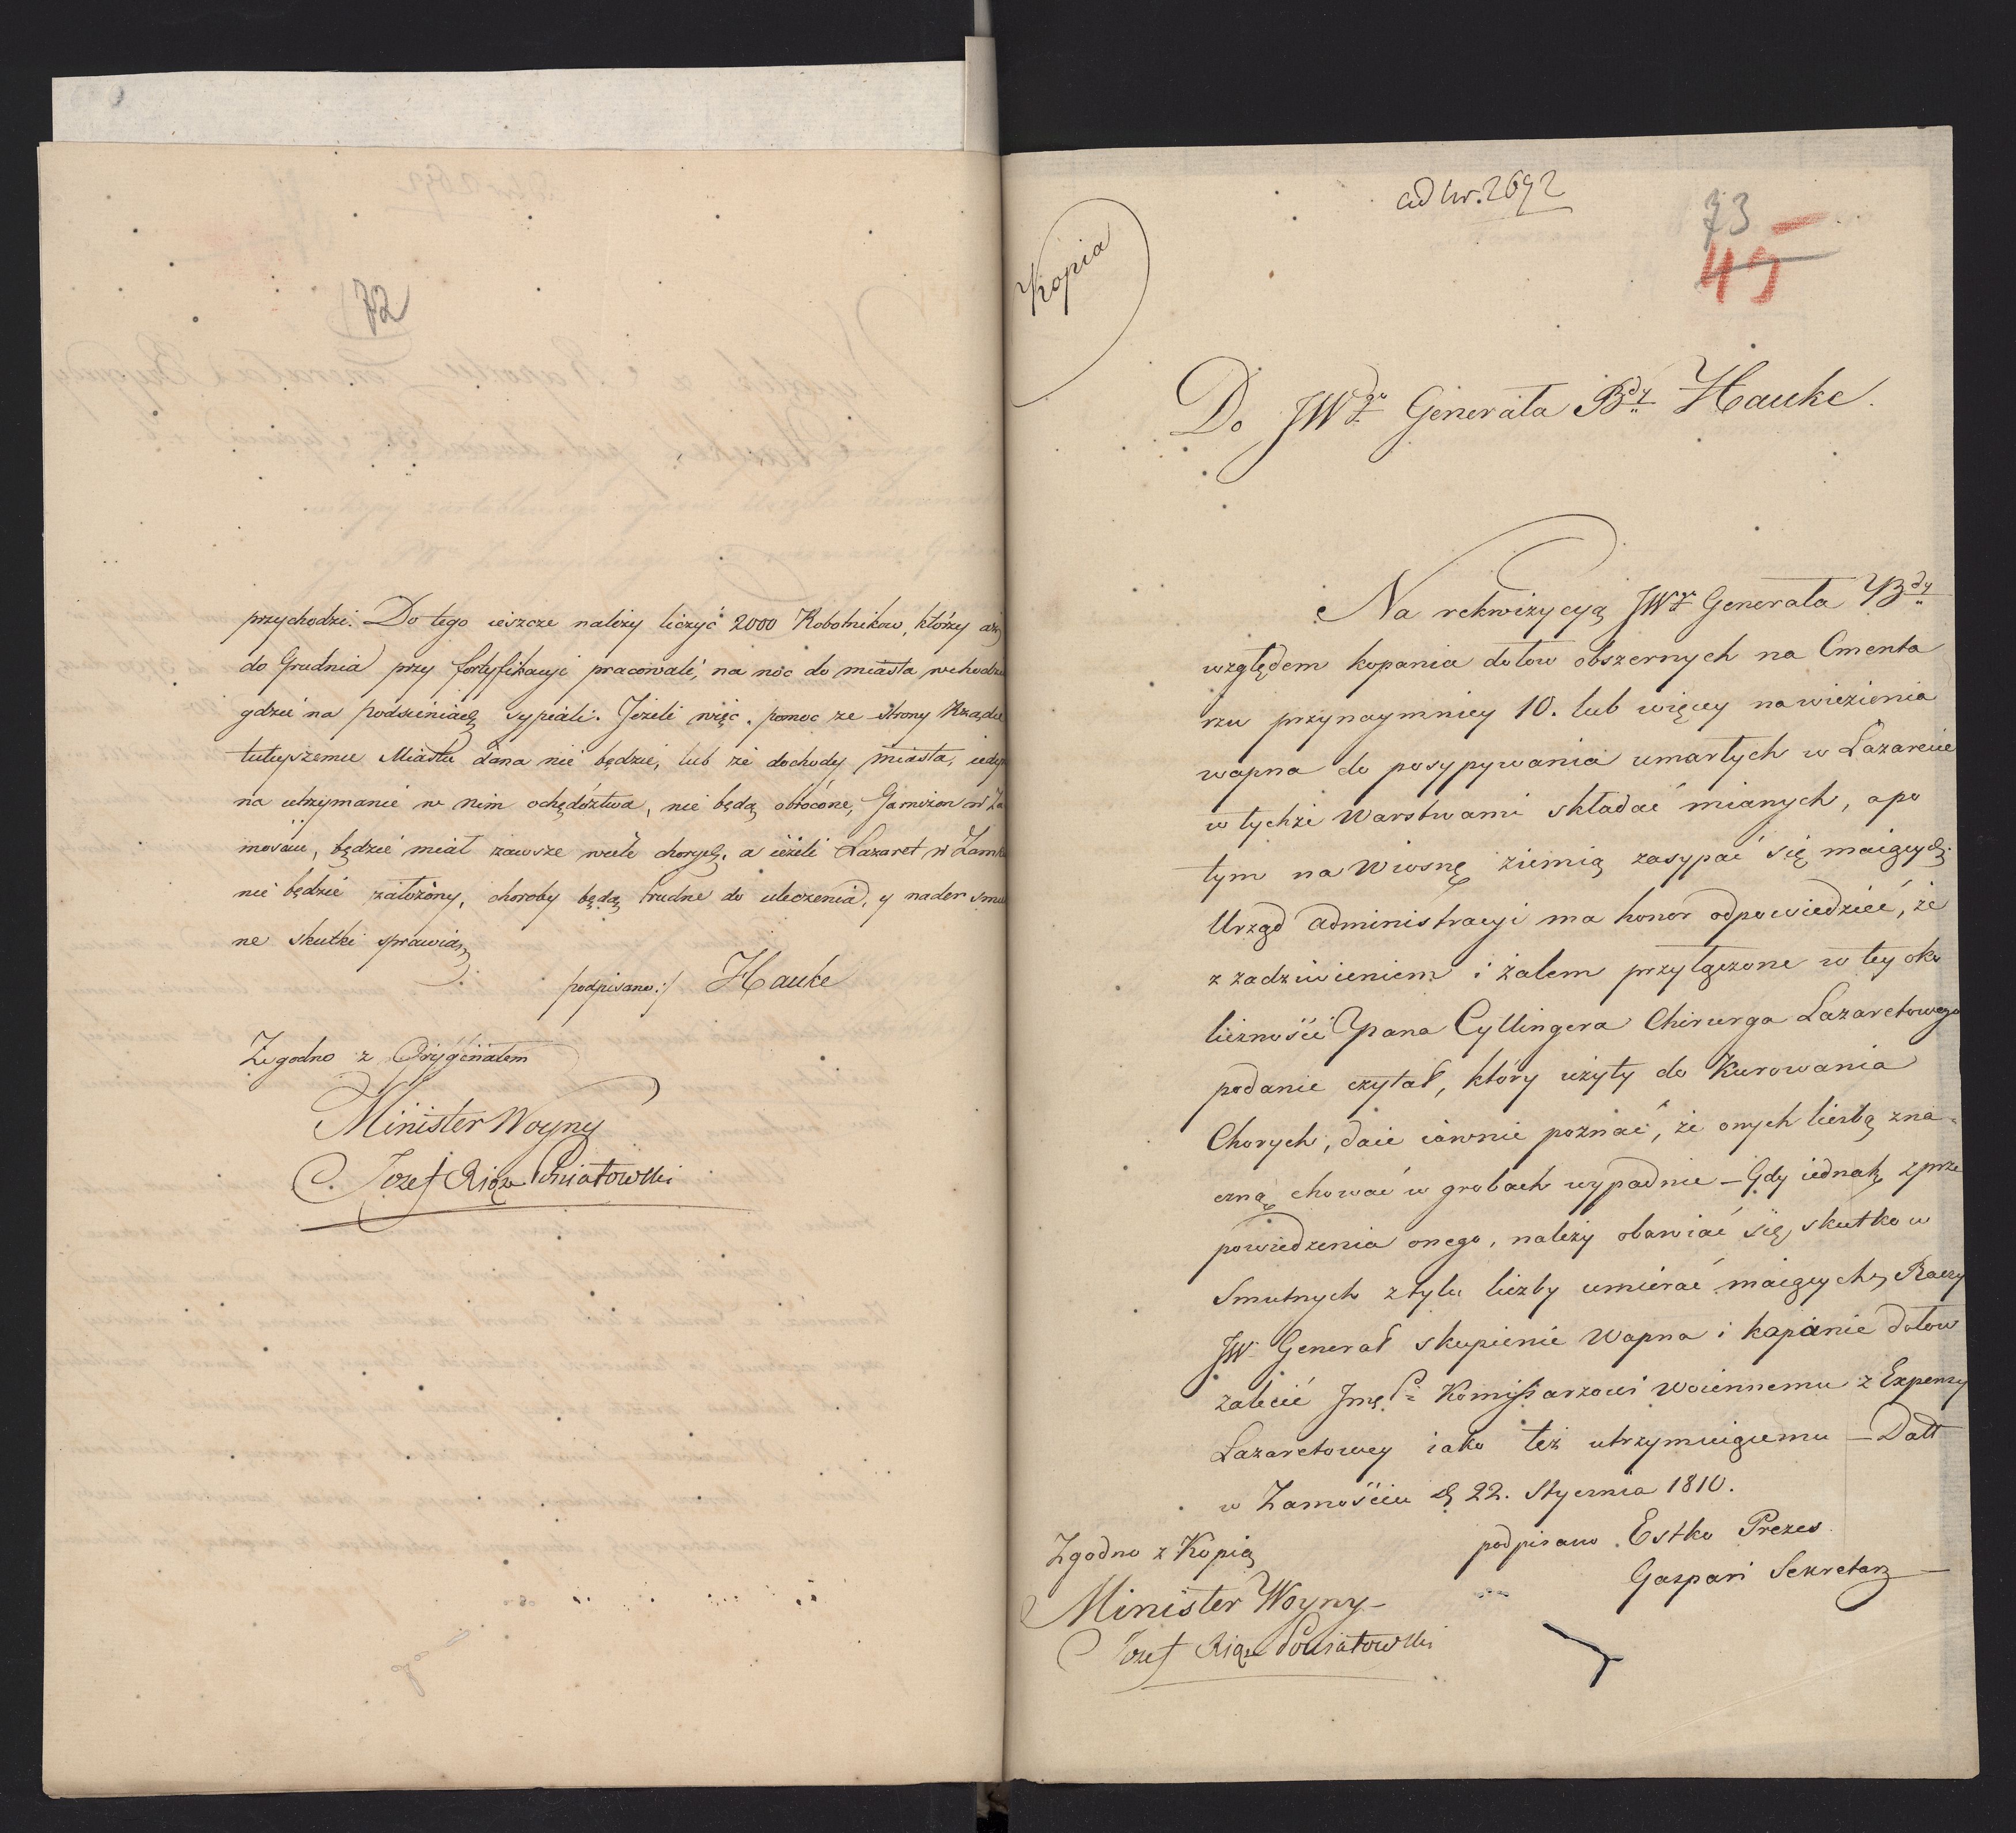 72
przychodzi. Do tego ieszcze należy liczyć 2000 Robotnikow, którzy aż
do Grudnia przy fortyfikacyi pracowali, na noc do miasta wchodzi
gdzie na podsieniach sypiali. Jeżeli więc pomoc ze strony Rządu
tuteyszemu Miastu dana nie będzie, lub że dochody miasta, iedyn
na utrzymanie w nim ochędóztwa, nie będą obrócone, Garnizon w Za
mościu, będzie miał zawsze wiele chorych, a ieżeli Lazaret w Zamku
nie będzie założony, choroby będą trudne do uleczenia, y nader smu
ne skutki sprawią
podpisano:/ Hauke
Zgodno z Oryginałem
Minister Woyny
Jozef Xiąże Poniatowski
ad Nr. 2692
73
45
Kopia
Do JWgo Generała Bdy Hauke.
Na rekwizycyą JWgo Generała Bdy
względem kopania dołow obszernych na Cmenta
rzu przynaymniey 10. lub więcey nawiezienia
wapna do posypywania umarłych w Lazarecie
w tychże Warstwami składać mianych, apo
tym na Wiosnę ziemią zasypać się maiących
Urząd administracyi ma honor odpowiedzieć, że
z zadziwieniem i żalem przyłączone w tey oko
liczności Ypana Cyllingera Chirurga Lazaretowego
podanie czytał, który użyty do Kurowania
Chorych, daie iawnie poznać, że onych liczbą zna-
czną chować w grobach wypadnie – Gdy iednak z prze
powiedzenia onego, należy obawiać się skutkow
Smutnych z tylu liczby umierać maiących, Raczy
JW Generał skupienie Wapna i kopanie dołow
zalecić Jmć P. Komissarzowi Woiennemu z Expensy
Lazaretowey iako też utrzymuiącemu – Datt
w Zamościu d 22. Stycznia 1810.
podpisano Estko Prezes
Gaspari Sekretarz
Zgodno z Kopią
Minister Woyny
Jozef Xiąże Poniatowski